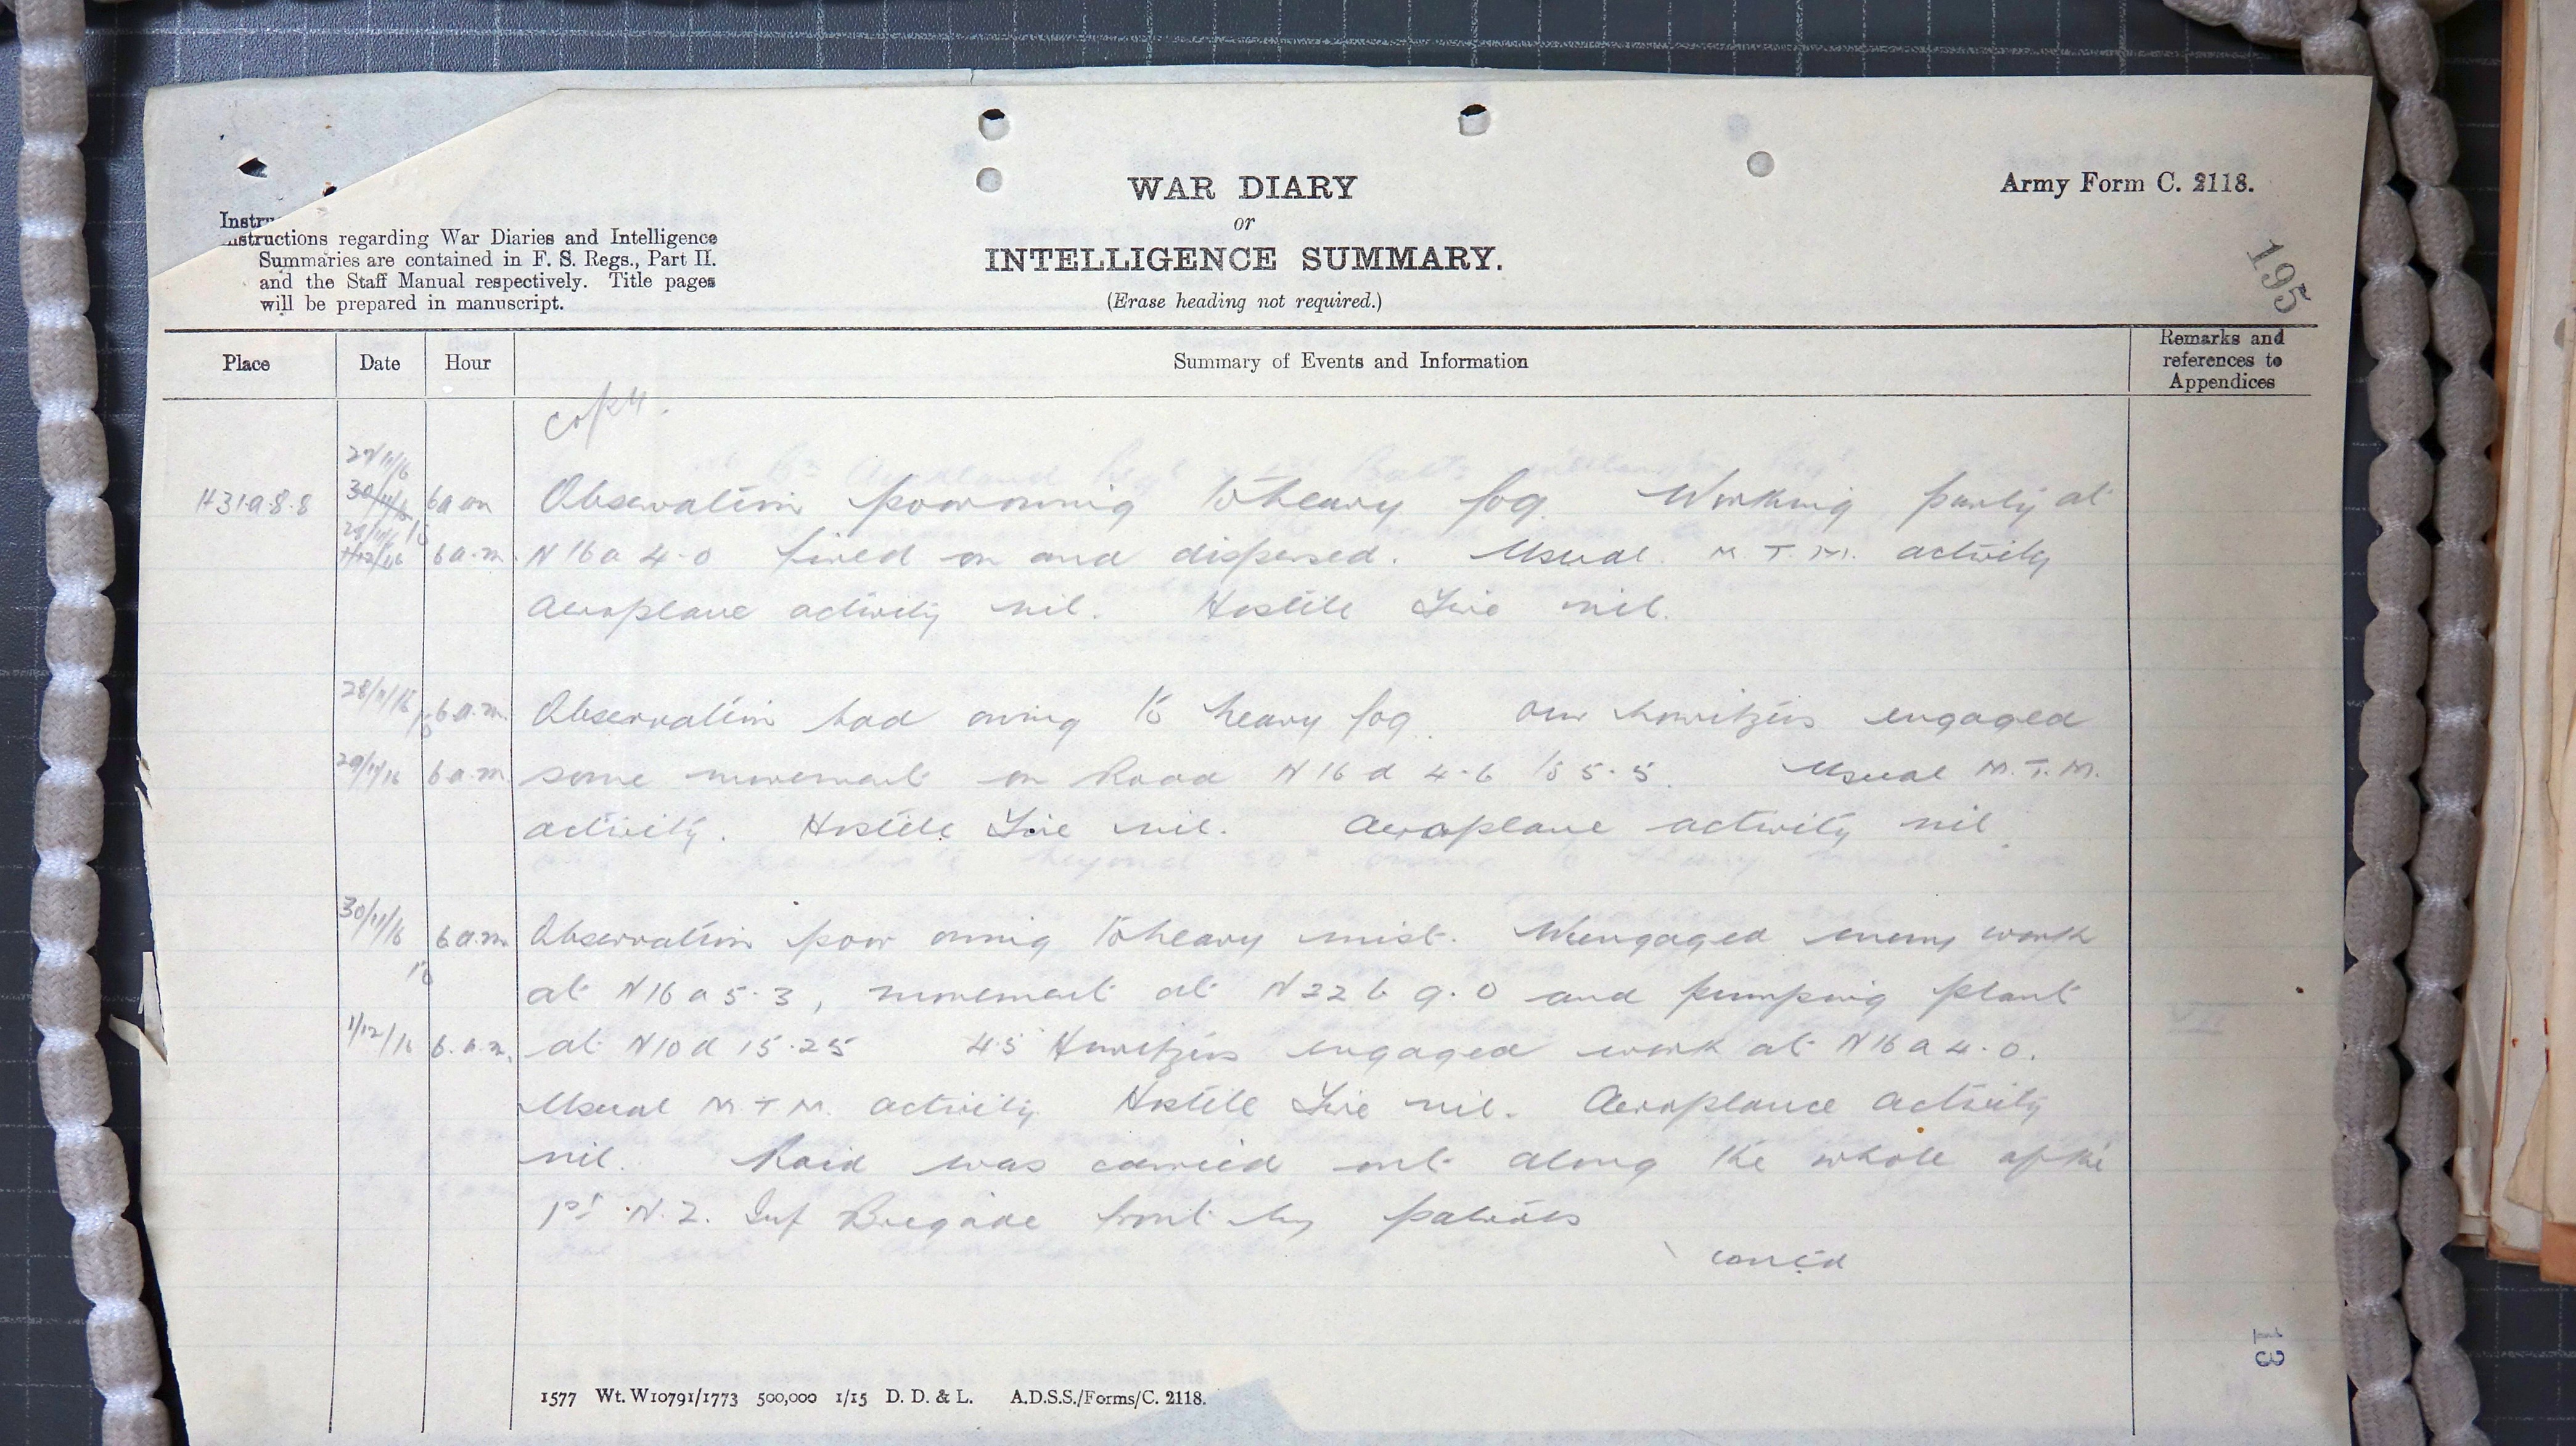 WAR DIARY
or
INTELLIGENCE SUMMARY.
(Erase heading not required.)
Army Form C. 2118.
195
Instr
structions regarding War Diaries and Intelligence
Summaries are contained in F. S. Regs., Part II.
and the Staff Manual respectively. Title pages
will be prepared in manuscript.
Place Date Hour Summary of Events and Information Remarks and references to Appendices
copy.
27/11/16
H31.a.8.8 30/11/16 6 a m Observation poor owing to heavy fog. Working party at
28/11/16 to
1/12/16 6 a.m. N 16 a 4.0 fired on and dispersed. Usual M.T.M. activity
Aeroplane activity nil. Hostile Fire nil.
28/11/16 to 6 a.m. Observation bad owing to heavy fog. Our howitzers engaged
29/11/16 6 a.m. some movement on Road N 16 d 4.6 to 5.5. Usual M.T.M.
activity. Hostile Fire nil. Aeroplane activity nil
30/11/16 6 a.m. Observation poor owing to heavy mist. We engaged enemy work
to at N16 a 5.3, movement at N22 b 9.0 and pumping plant
1/12/16 6.a.m. at N10 d 15.25 4.5 Howitzers engaged work at N16 a 4.0.
Usual M T M. activity Hostile Fire nil. Aeroplane activity
nil. Raid was carried out along the whole of the
1st N.Z. Inf Brigade front by patrols
cont'd
13
1577 Wt. W10791/1773 500,000 1/15 D. D. & L. A.D.S.S./Forms/C. 2118.